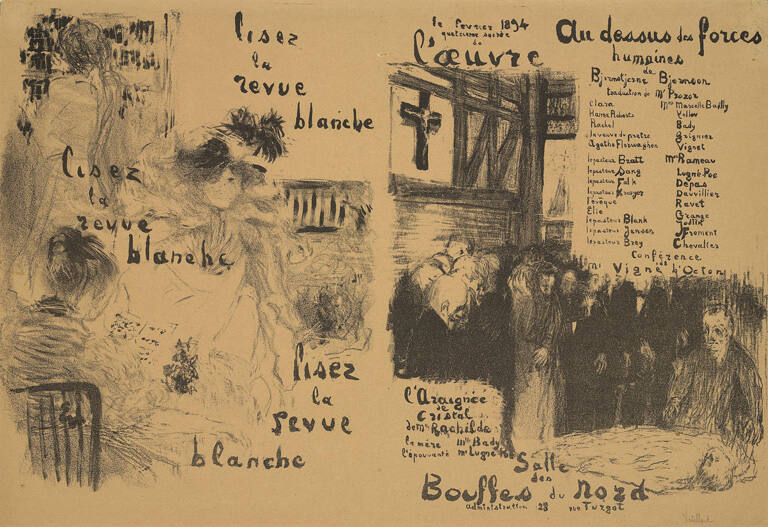 lisez
la
revue
blanche
lisez
la
revue
blanche
lisez
la
revue
blanche
le fevrier 1894
quatrieme soirée
de
l'œuvre
au dessus des forces
humaines
de
Bjornstjerne Bjornson
traduction de Mr Prozor
Clara Mme Marcelle Bailly
Hanna Roberts
Rachel Bady
la veuve du pretre Grignier
Agathe Vignet
le pasteur Bratt Mr Rameau
le pasteur Sang Lugné-Poe
le pasteur Falk Dépas
le pasteur Dauvillier
l'évêque Ravet
Elie Grange
le pasteur Blank
le pasteur Jensen Froment
le pasteur Brey Chevalley
Conférence
de
Mr Vigné d'Octon
l'Araignée
de
Cristal
de Mme Rachilde
la mère Mlle Bady
l'épouvanté Mr Lugné Poe
Salle
des
Bouffes du Nord
administration 23 rue Turgot